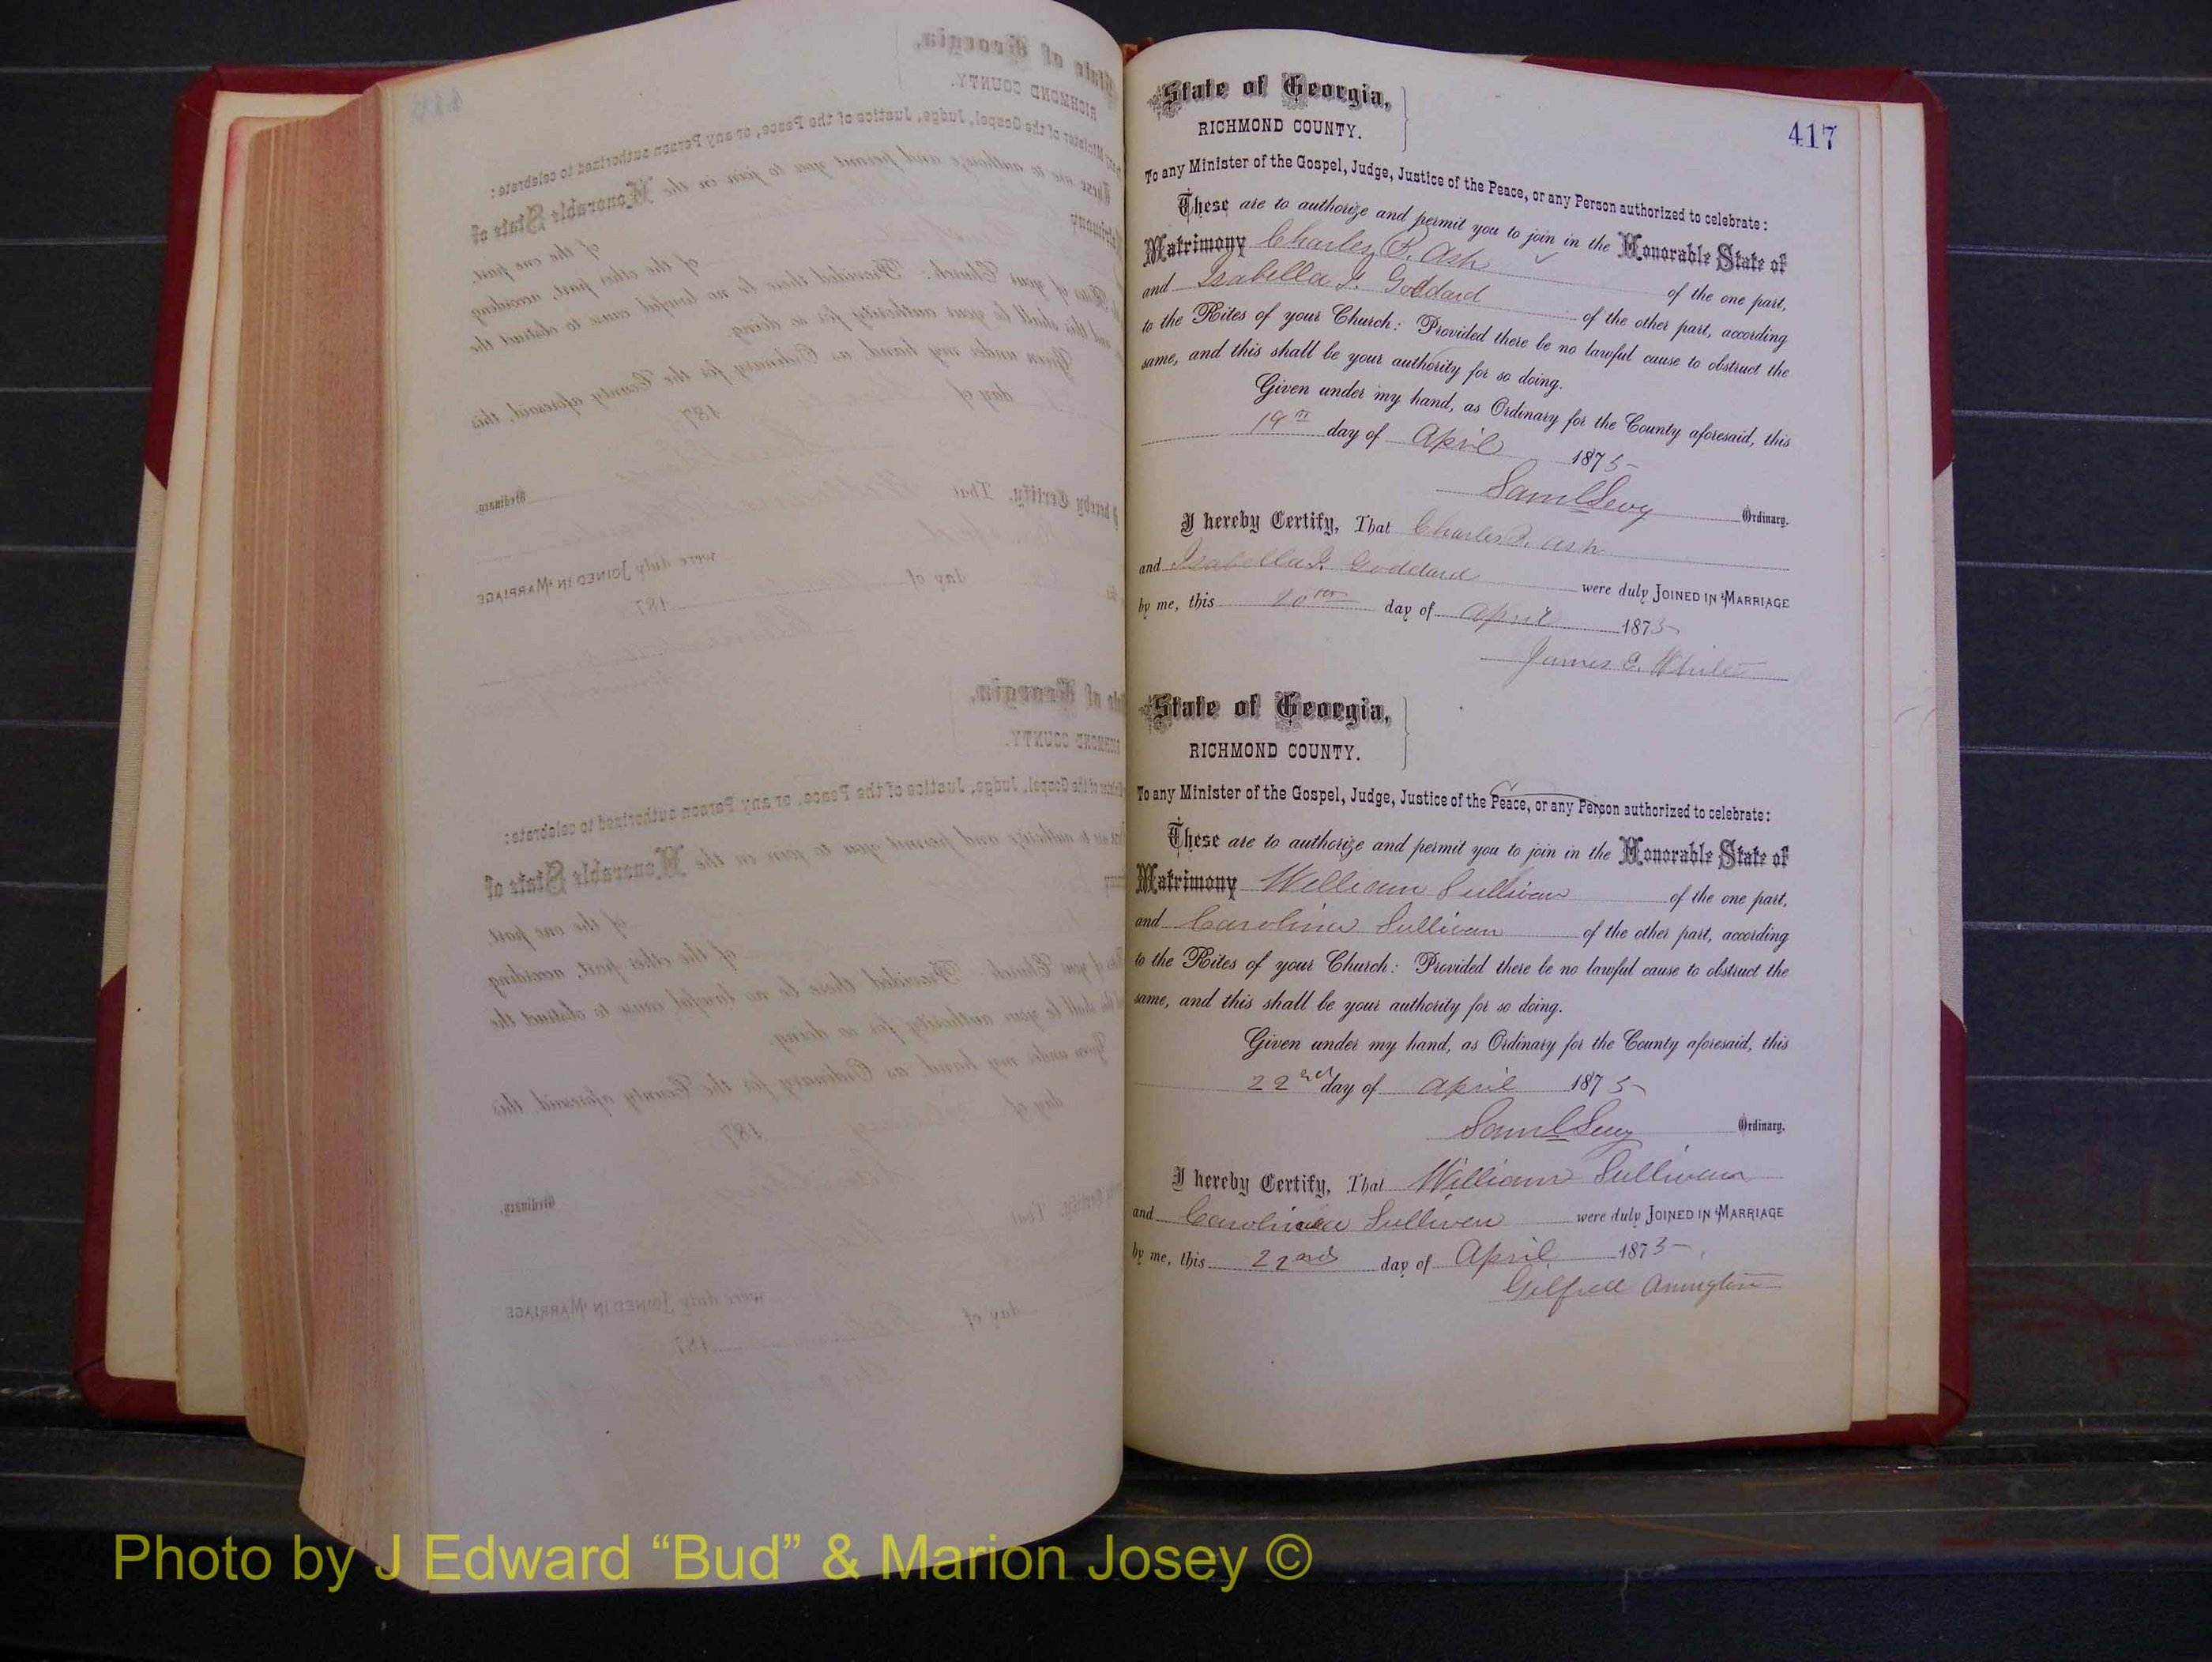 417
State of Georgia,
RICHMOND COUNTY.
To any Minister of the Gospel, Judge, Justice of the Peace, or any Person authorized to celebrate:
These are to authorize and permit you to join in the Honorable State of
Matrimony Charley R. Ash of the one part,
and Isabella J. Goddard of the other part, according
to the Rites of your Church: Provided there be no lawful cause to obstruct the
same, and this shall be your authority for so doing.
Given under my hand, as Ordinary for the County aforesaid, this
19th day of April 1875
Saml Levy Ordinary.
I hereby Certify, That Charles R. Ash
and Isabella J. Goddard were duly JOINED IN MARRIAGE
by me, this 20th day of April 1875
James E. White
State of Georgia,
RICHMOND COUNTY.
To any Minister of the Gospel, Judge, Justice of the Peace, or any Person authorized to celebrate:
These are to authorize and permit you to join in the Honorable State of
Matrimony William Sullivan of the one part,
and Carolina Sullivan of the other part, according
to the Rites of your Church: Provided there be no lawful cause to obstruct the
same, and this shall be your authority for so doing.
Given under my hand, as Ordinary for the County aforesaid, this
22nd day of April 1875
Saml Levy Ordinary.
I hereby Certify, That William Sullivan
and Sullivan were duly JOINED IN MARRIAGE
by me, this 22nd day of April 1875
Photo by J Edward “Bud” & Marion Josey ©